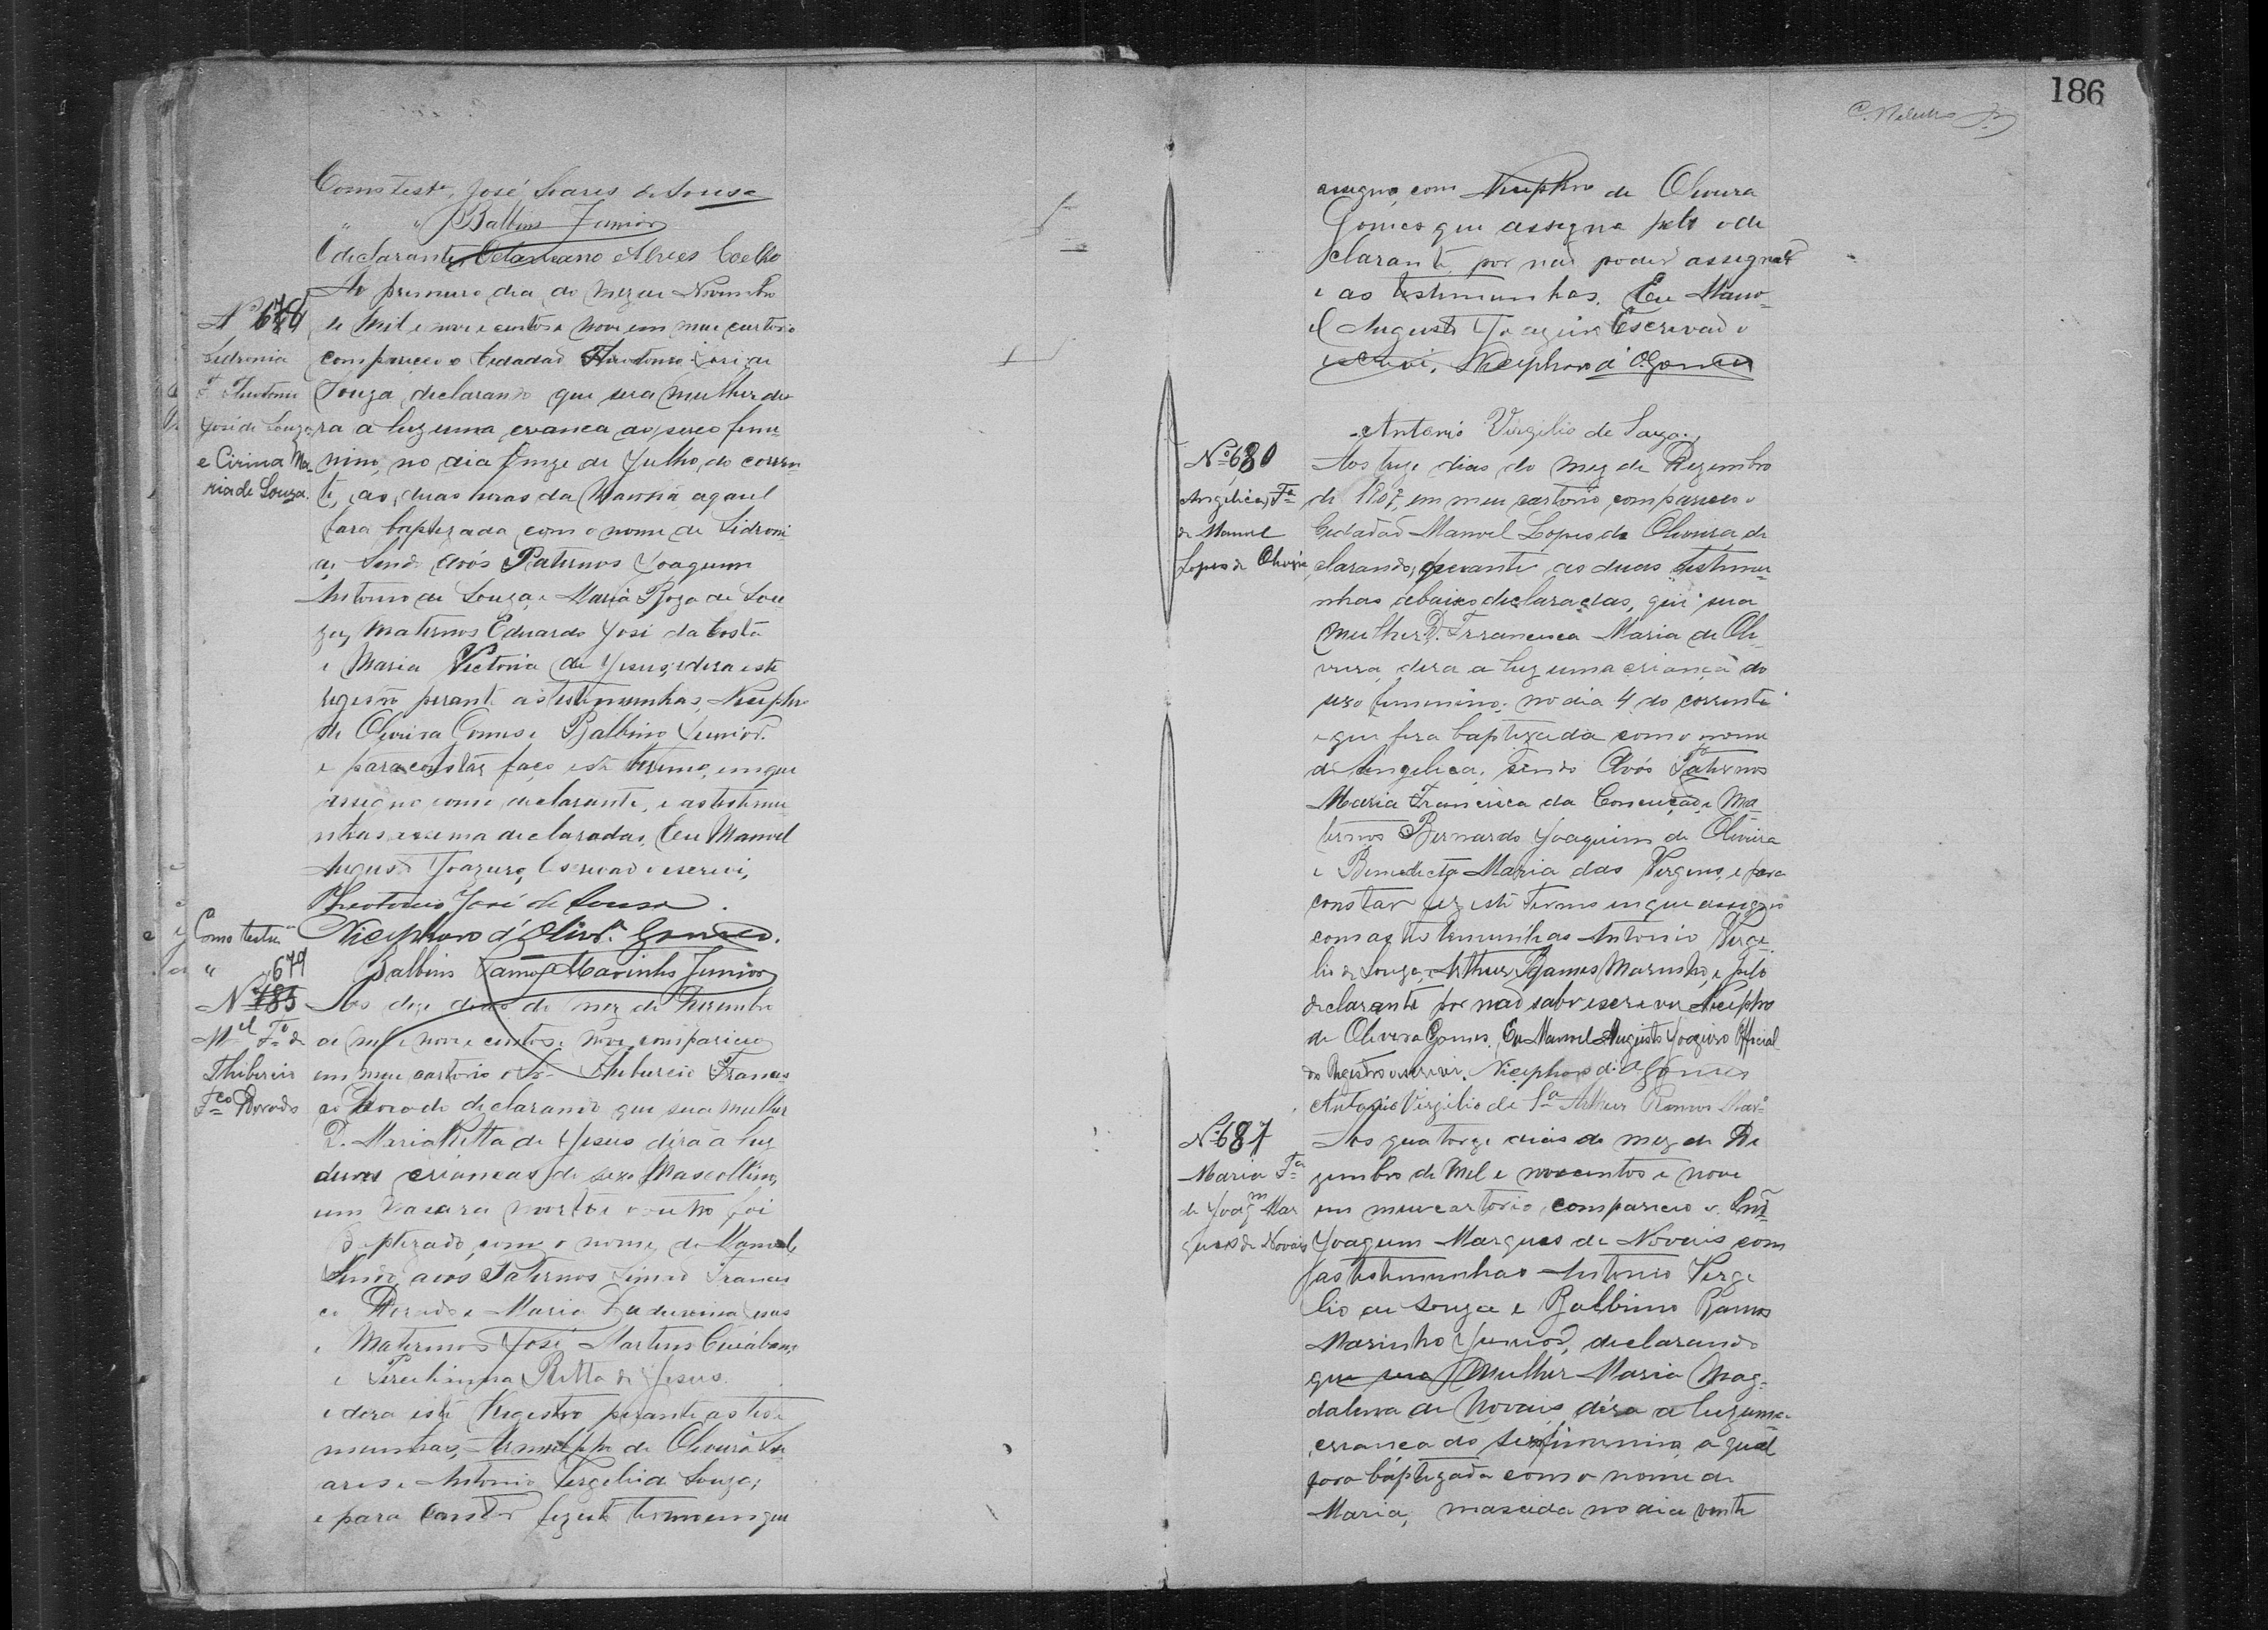 Como testa José Soares de Sousa
" " Balbino Junior
O declarante Octaviano Alves Coelho
Ao primeiro dia do mez de Novembro
Nº 678
de mil e nove centos e nove em meu cartorio
Sidronia
compareceu o Cidadão Theotonio José de
Fª Theotonio
Souza, declarando que sua mulher de
José de Souza
ra a luz uma creanca do sexo femi-
e Cirina Ma-
nino, no dia quinze de Julho do corren
ria de Souza.
te, as duas horas da Manhã aqual
fora baptizada com o nome de Sidroni
a, Sendo avós Paternos Joaquim
Antonio de Souza, e Maria Roza de Sou
za, Maternos Eduardo José da Costa
e Maria Victoria de Jesus, e dera este
registro perante as testemunhas, Nicephro
de Oliveira Gomes e Balbino Junior.
e para constar faço este termo, em que
assigno como declarante, e as testemu
nhas acima declaradas, Eu Manoel
Augusto Joazeiro, Escrivão o escrevi,
Theotonio José de Sousa.
Como testa Nicephoro d'Olivra Gomes.
" Balbino Ramos Marinho Junior
679
Nº 185
Aos doze dias do mez de Dezembro
Mel Fº de
de mil e nove centos e nove, compareceu
Thiburcio
em meu cartorio o Sr. Thiburcio Francis
Fco Dorado
co Dorado declarando que sua mulher
D. Maria Ritta de Jesus déra a luz
duas crianeas do sexo Mascollino,
um nasceu morto e o outro foi
Baptizado com o nome de Manoel,
Sendo avós Paternos Francis
co Dorado e Maria
e Maternos José Martins
e Ritta de Jesus.
e dera este Registro perante as teste
munhas, de Oliveira So
ares e Antonio Vergelio de Souza;
e para constar fiz este termo em que
186
assigno, com Nicephro de Oliveira
Gomes que assigna pelo o de
clarante, por não poder assignar
e as testemunhas. Eu Mano-
el Augusto Joazeiro Escrivão o
escrevi. Nicephoro d'O. Gomes
Antonio Virgilio de Souza.
Nº 680
Aos treze dias do mez de Dezembro
Angelica, Fª
de 1909, em meu cartorio, compareceu o
de Manoel
Cidadão Manoel Lopes de Oliveira de
Lopes de Oliveira
clarando, perante as duas testemu-
nhas abaixo declaradas, que sua
mulher D. Francisca Maria de Oli-
veira, dera a luz uma criança do
sexo femenino, no dia 4 do corrente
e que fora baptizada com o nome
de Angelica, Sendo Avós Paternos
Maria Francisca da Conceição e Ma-
ternos Bernardo Joaquim de Oliveira
e Benedicta Maria das Virgens, e para
constar fiz este Termo em que assigno
com as testemunhas Antonio Verge-
lio de Souza, Arthur Ramos Marinho, e pelo
declarante por não saber escrever Nicephro
de Oliveira Gomes. Eu Manoel Augusto Joazeiro Official
do Registro o escrevi. Nicephoro d'O Gomes
Antonio Virgilio de Sa Arthur Ramos Maro
Nº 681
Aos quatorze dias do mez de De
Maria Fª
zembro de Mil e novecentos e nove
de Joaqm Mar
em meu cartorio, compareceu o
ques de Novais
Joaquim Marques de Novais com
as testemunhas Antonio Verge
lio de Souza e Balbino Ramos
Marinho Junior, declarando
que sua Mulher Maria Mag-
dalena de Novais, déra a luz uma
creanca do sexo femenino, a qual
fora baptizada com o nome de
Maria, nascida no dia vinte